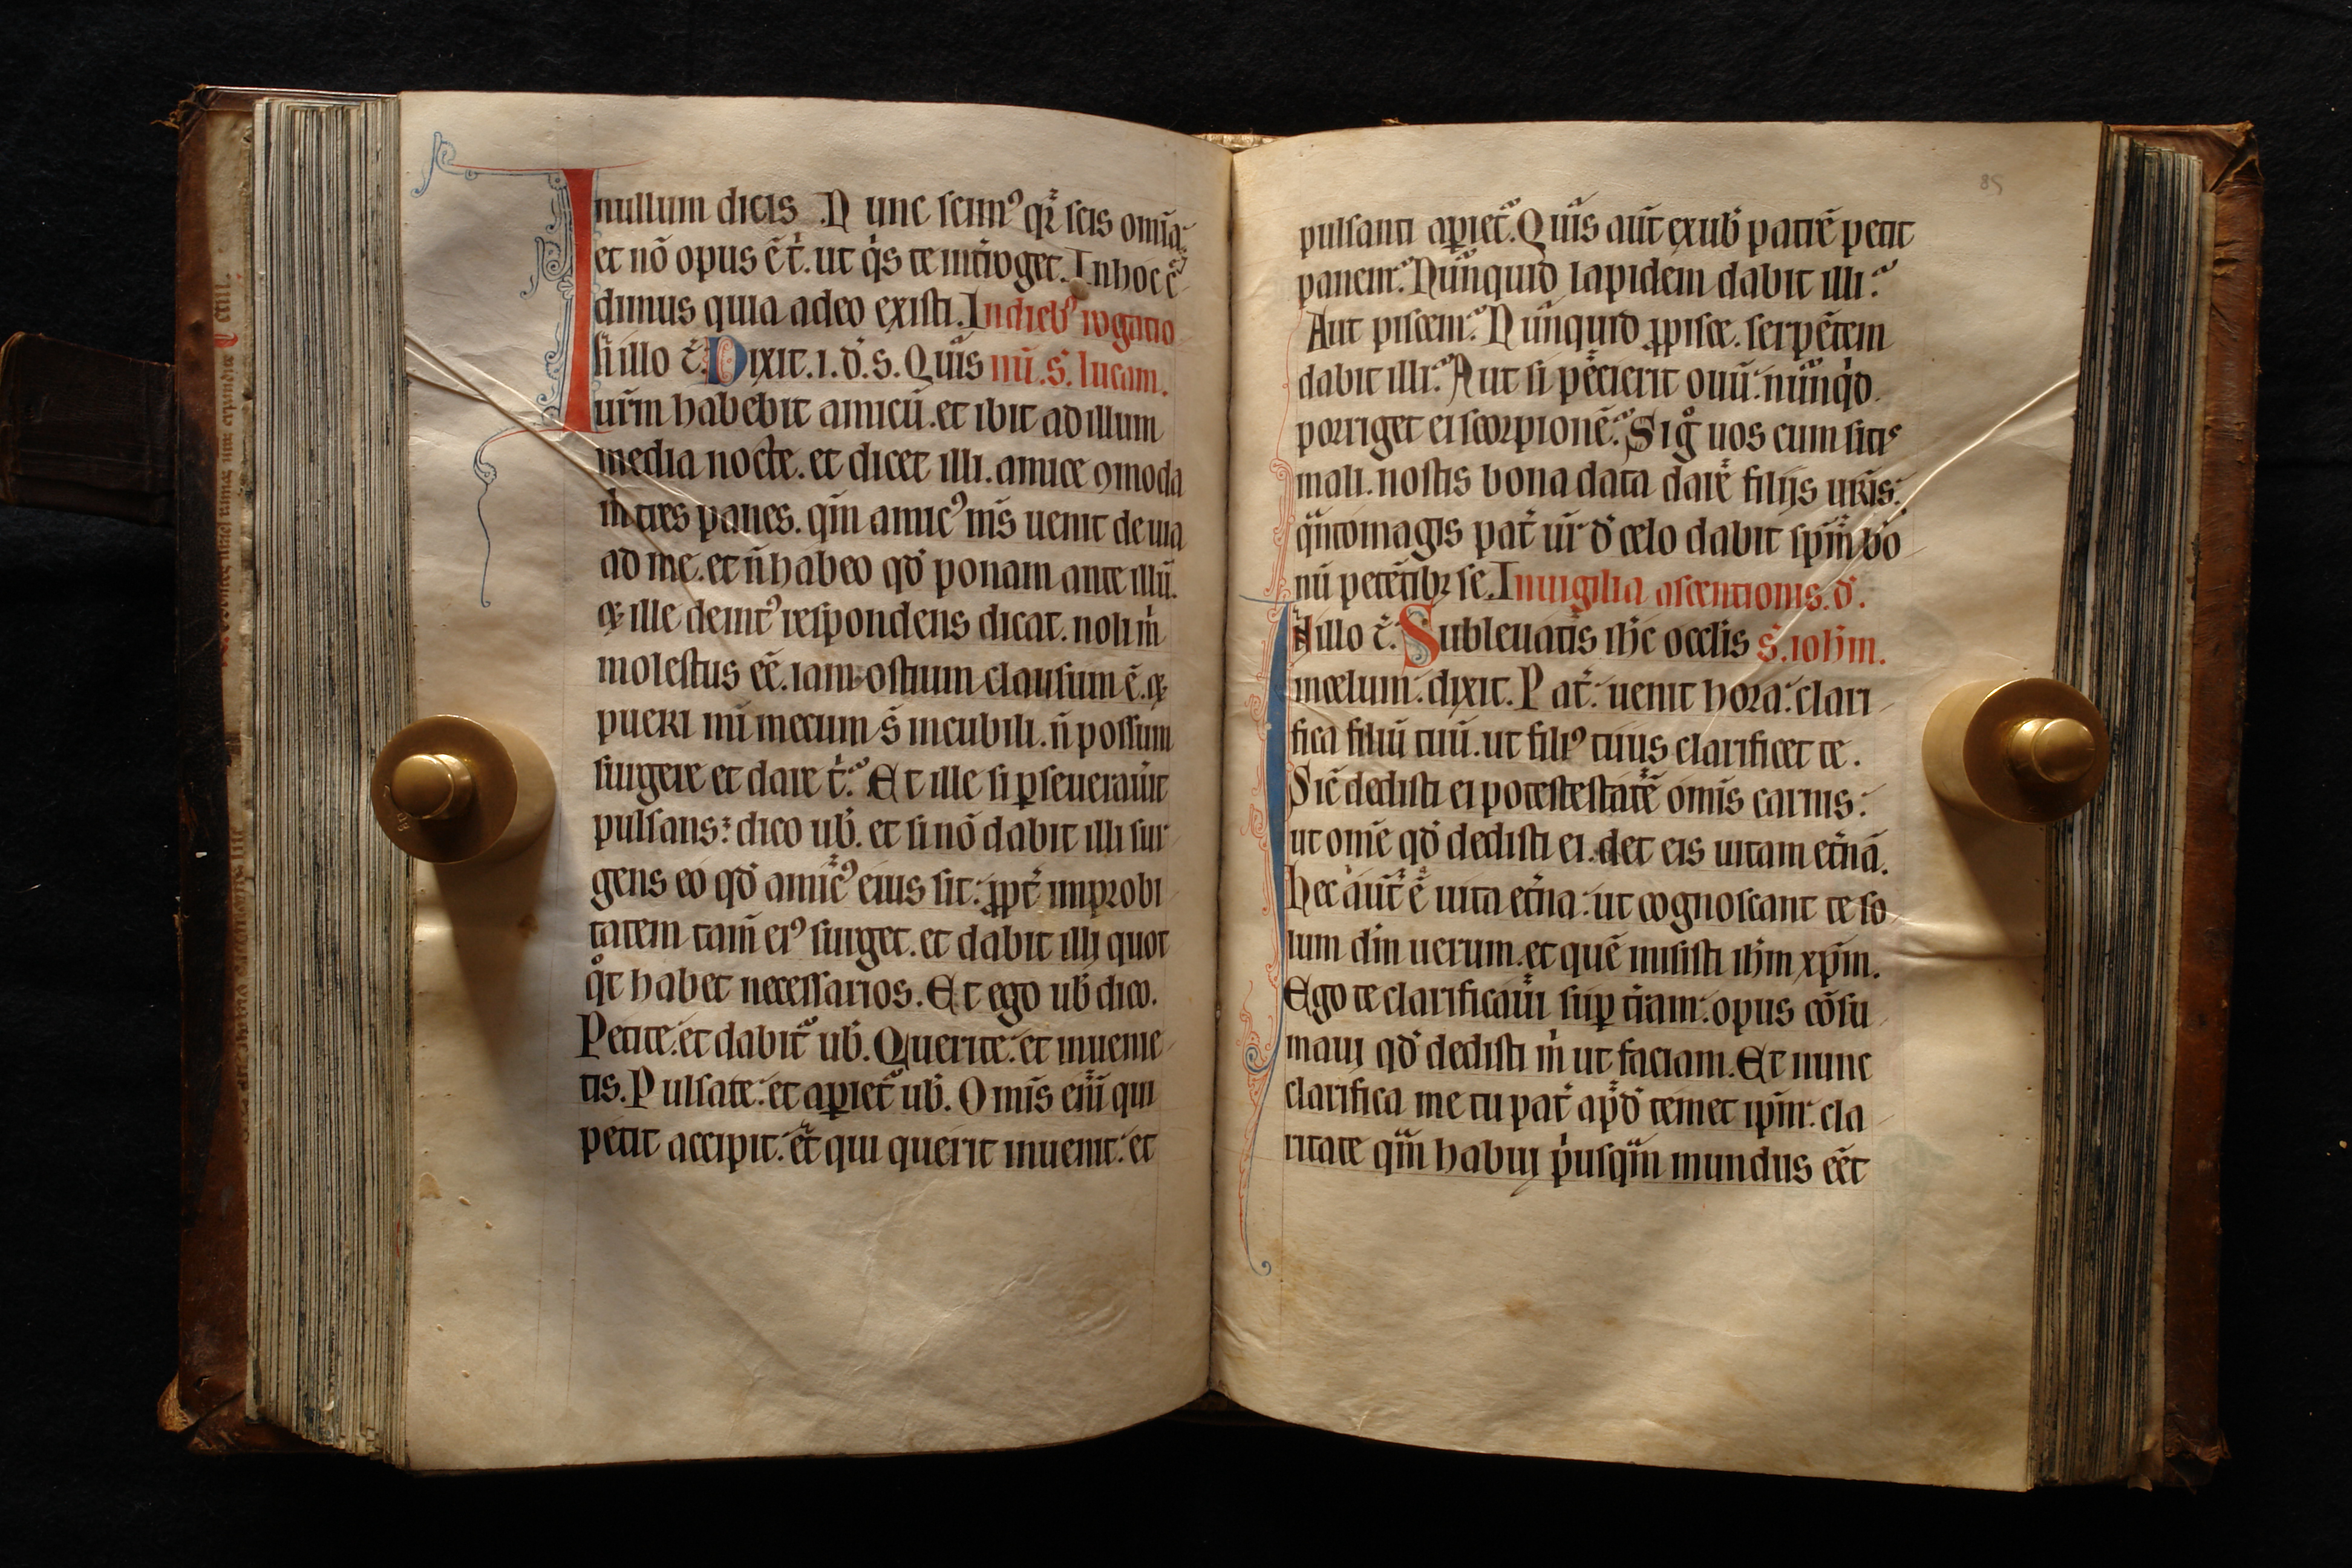 nullum dicis. Nunc scim᾽ qr̄ scis om̄ia:
et nō opus ē t̄. ut q̇s te int̄roget. In hoc c̄
dimus quia a deo existi. In dieb᾽ rogatio
In illo t̄. Dixit .i. d̄. s. Quis nū. s̄. lucam.
ur̄m habebit amicū. et ibit ad illum
media nocte. et dicet illi. amice ꝯmoda
m̄ tres panes. qm̄ amic᾽ m̄s uenit de uia
ad me. et n̄ habeo qd̄ ponam ante illū.
Et ille deint᾽ respondens dicat. noli m̄
molestus eē. iam ostium clausum ē. et
pueri mī mecum s̄ in cubili. n̄ possum
surgere et dare t̄. Et ille si ꝑseuerauīt
pulsans: dico ub̄. et si nō dabit illi sur
gens eo qd̄ amic᾽ eius sit: ꝓpt̄ improbi
tatem tam̄ ei᾽ surget. et dabit illi quot
qͦt habet necessarios. Et ego ub̄ dico.
Petite: et dabit̄ ub̄. Querite: et inuenie
tis. Pulsate: et aꝑiet̄ ub̄. Omīs enī qui
petit accipit: et qui querit inuenit: et
85
pulsanti aꝑiet̄. Quis aut̄ ex ub̄ patrē petit
panem: Nūnquid lapidem dabit illi:
Aut piscem: Nūnquid ꝓ pisce. serpētem
dabit illi: Aut si pecierit ouū: nūnqd̄
porriget ei scorpionē: Si gͦ uos cum sitis
mali. nostis bona data dare filijs ur̄is:
qn̄tomagis pat̄ ur̄ d̄ celo dabit sp̄m bo
nū petētibꝫ se. In uigilia ascentionis. d̄.
In illo t̄. Subleuatis ih̄c oc̄lis s̄. ioh̄m.
in celum: dixit. Pat̄: uenit hora: clari
fica filiū tuū. ut fili᾽ tuus clarificet te.
Sic̄ dedisti ei potestestatē om̄is carnis:
ut om̄e qd̄ dedisti ei. det eis uitam et̄nā.
Hec aut̄ ē uita et̄na: ut cognoscant te so
lum dm̄ uerum. et quē misisti ih̄m xp̄m.
Ego te clarificaui suꝑ t̄ram: opus cōsu
maui qd̄ dedisti m̄ ut faciam. Et nunc
clarifica me tu pat̄ apd̄ temet ip̄m: cla
ritate qm̄ habui p̄usqm̄ mundus eēt